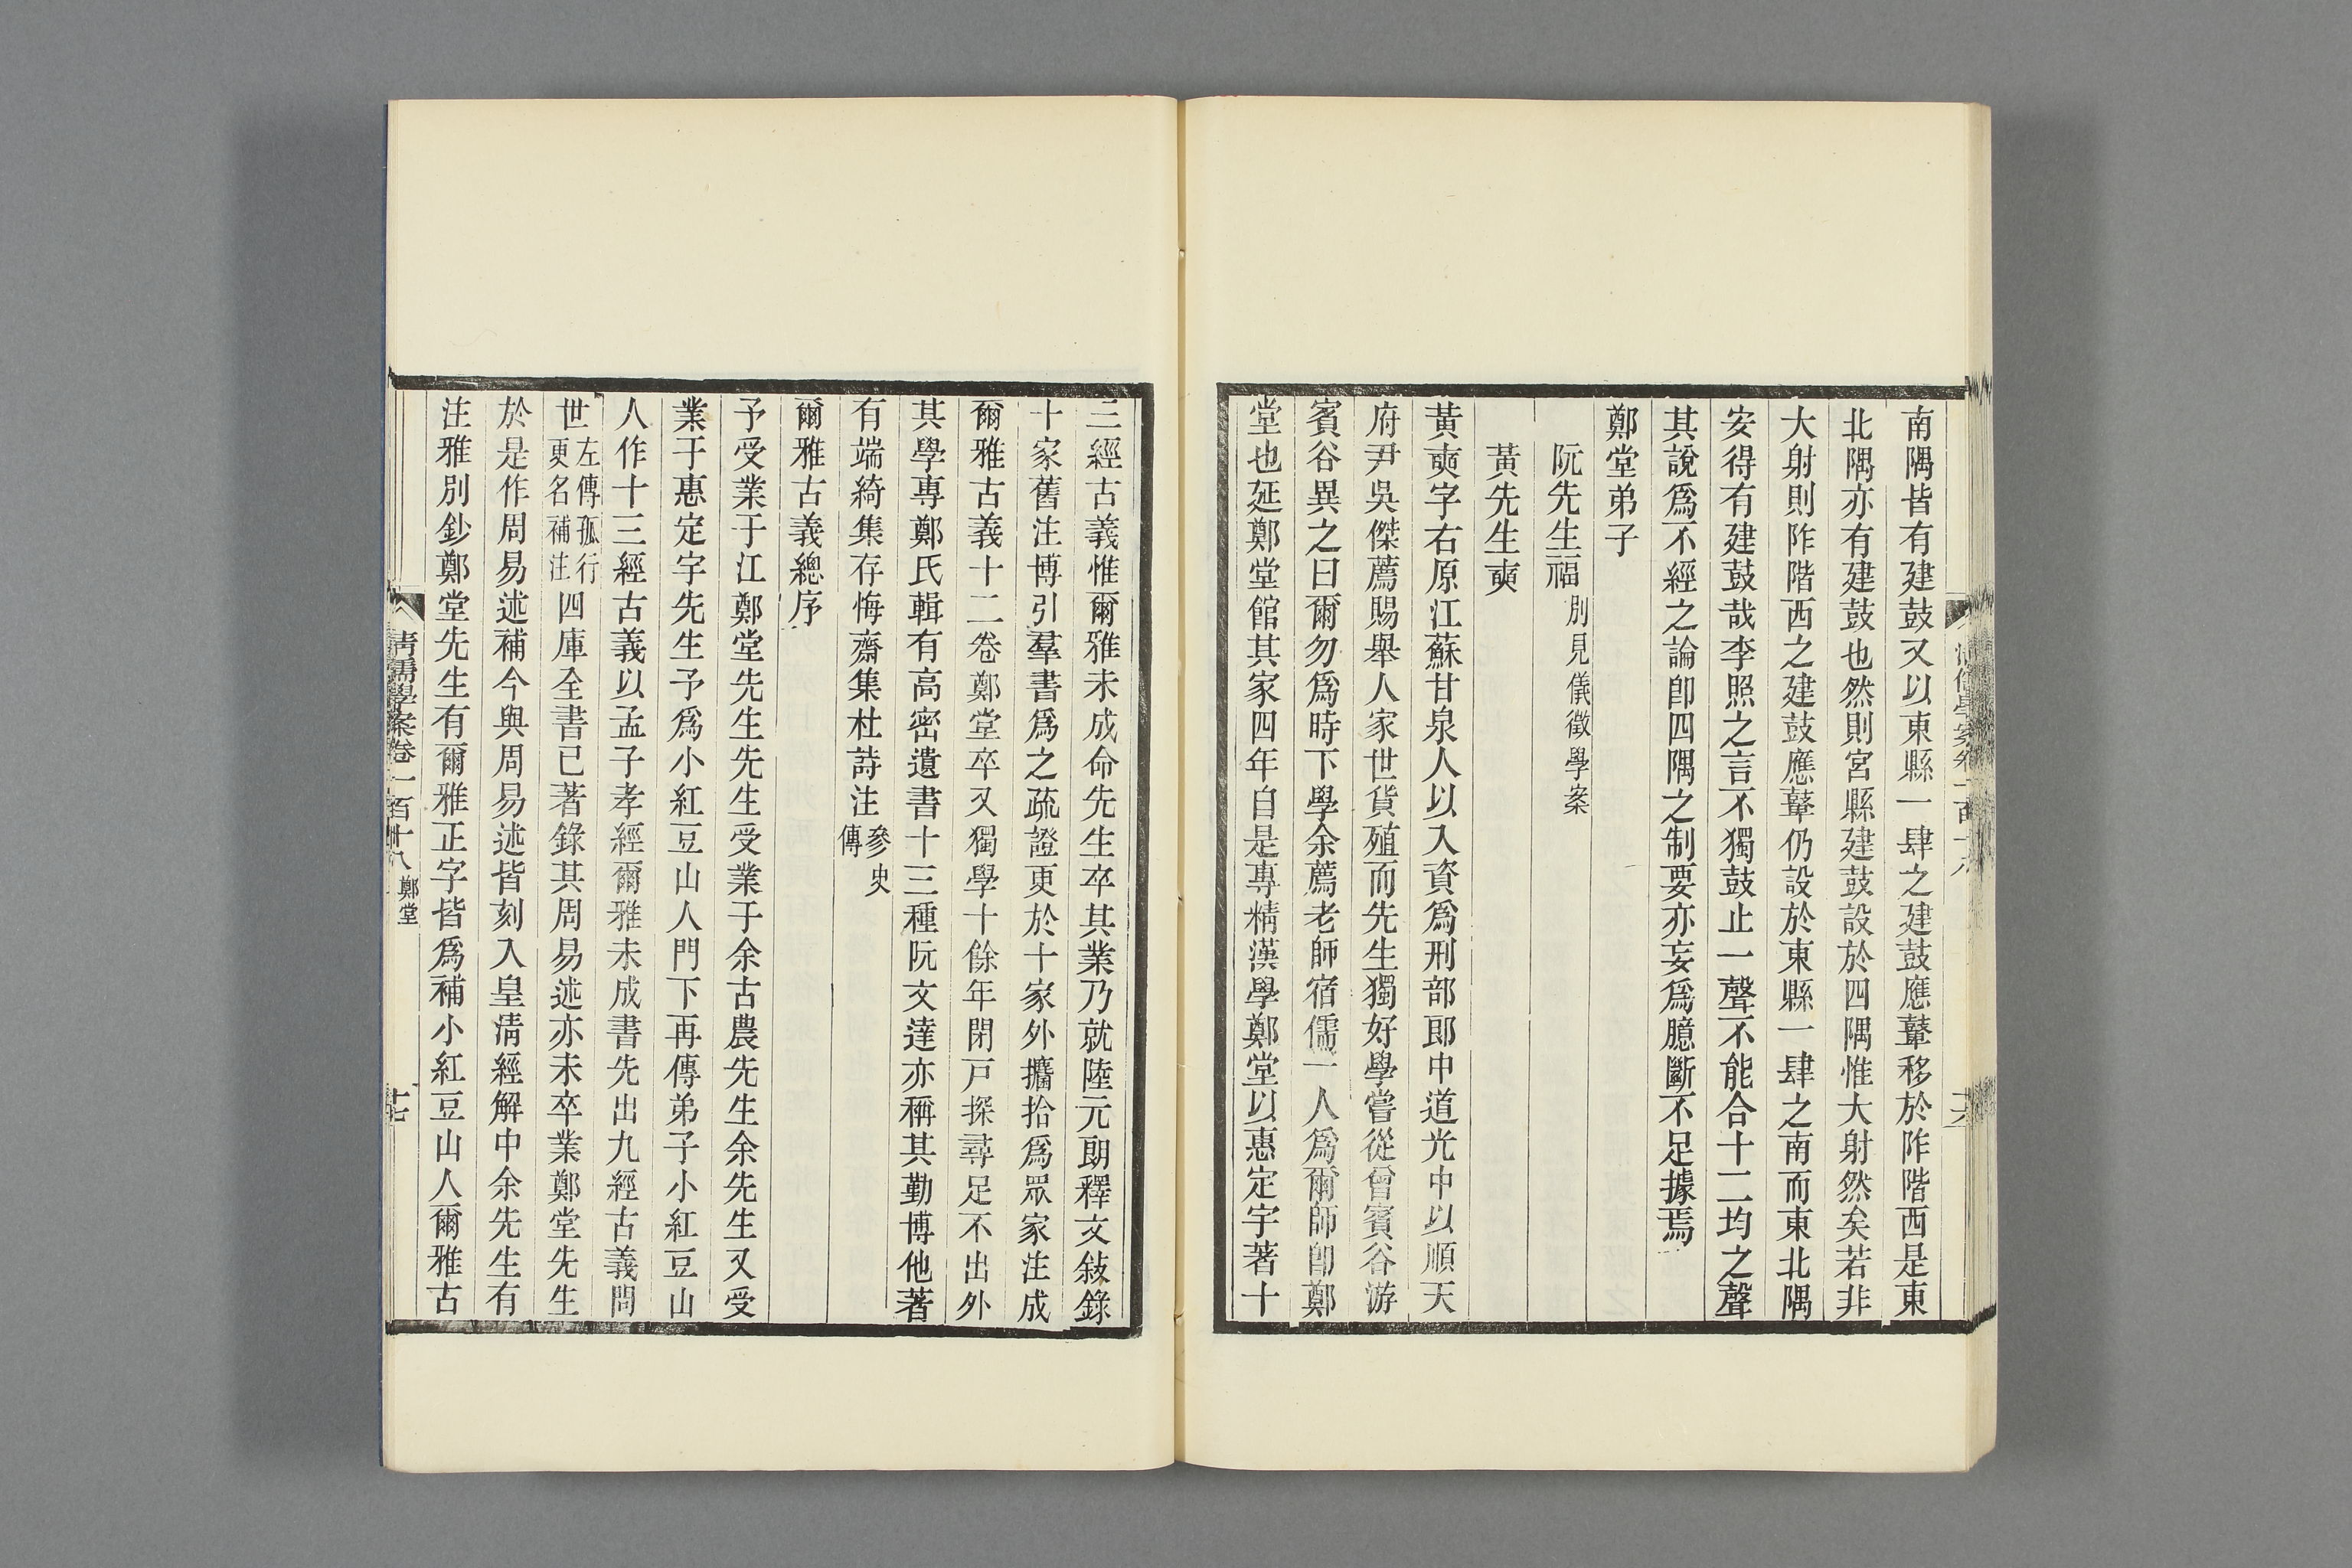 南隅皆有建鼓又以東縣一肆之建鼓應鼙移於阼階西是東
北隅亦有建鼓也然則宮縣建鼓設於四隅惟大射然矣若非
大射則阼階西之建鼓應鼙仍設於東縣一肆之南而東北隅
安得有建鼓哉李照之言不獨鼓止一聲不能合十二均之聲
其說爲不經之論卽四隅之制要亦妄爲臆斷不足據焉
鄭堂弟子
阮先生福別見儀徵學案
黃先生奭
黃奭字右原江蘇甘泉人以入資爲刑部郎中道光中以順天
府尹吳傑薦賜舉人家世貨殖而先生獨好學嘗從曾賓谷游
賓谷異之曰爾勿爲時下學余薦老師宿儒一人爲爾師卽鄭
堂也延鄭堂館其家四年自是專精漢學鄭堂以惠定宇著十
三經古義惟爾雅未成命先生卒其業乃就陸元朗釋文敍錄
十家舊注博引羣書爲之疏證更於十家外攟拾爲眾家注成
爾雅古義十二卷鄭堂卒又獨學十餘年閉戸探尋足不出外
其學專鄭氏輯有高密遺書十三種阮文達亦稱其勤博他著
有端綺集存悔齋集杜詩注參史傳
爾雅古義總序
予受業于江鄭堂先生先生受業于余古農先生余先生又受
業于惠定宇先生予爲小紅豆山人門下再傳弟子小紅豆山
人作十三經古義以孟子孝經爾雅未成書先出九經古義問
世左傳孤行更名補注四庫全書已著錄其周易述亦未卒業鄭堂先生
於是作周易述補今與周易述皆刻入皇清經解中余先生有
注雅別鈔鄭堂先生有爾雅正字皆爲補小紅豆山人爾雅古
清儒學案卷一百十八 鄭堂
十七